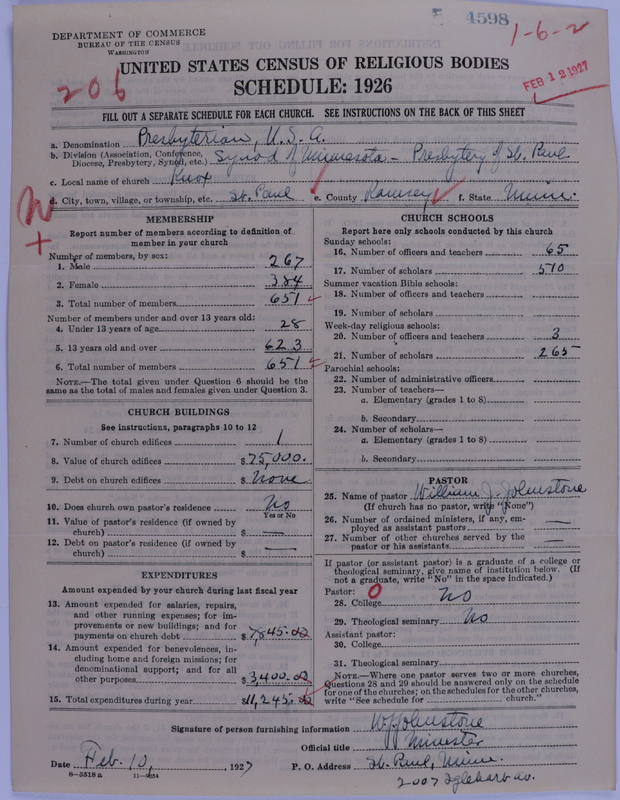 4598
1-6-2
DEPARTMENT OF COMMERCE
BUREAU OF THE CENSUS
WASHINGTON
206
FEB 12 1927
UNITED STATES CENSUS OF RELIGIOUS BODIES
SCHEDULE: 1926
FILL OUT A SEPARATE SCHEDULE FOR EACH CHURCH. SEE INSTRUCTIONS ON THE BACK OF THIS SHEET
a. Denomination Presbyterian, U.S.A.
b. Division (Association, Conference, Diocese, Presbytery, Synod, etc.) Synod of Minnesota - Presbytery of St. Paul
c. Local name of church Knox
d. City, town, village, or township, etc. St. Paul e. County Ramsey f. State Minn.
MEMBERSHIP
Report number of members according to definition of
member in your church
Number of members, by sex:
1. Male 267
2. Female 384
3. Total number of members 651
Number of members under and over 13 years old:
4. Under 13 years of age 28
5. 13 years old and over 623
6. Total number of members 651
NOTE.—The total given under Question 6 should be
same as the total of males and females given under Question 3.
CHURCH BUILDINGS
See instructions, paragraphs 10 to 12
7. Number of church edifices 1
8. Value of church edifices $75,000.
9. Debt on church edifices $None
10. Does church own pastor's residence No
Yes or No
11. Value of pastor's residence (if owned by
church) $ —
12. Debt on pastor's residence (if owned by
church) $ —
EXPENDITURES
Amount expended by your church during last fiscal year
13. Amount expended for salaries, repairs,
and other running expenses; for im-
provements or new buildings; and for
payments on church debt $7,845.00
14. Amount expended for benevolences, in-
cluding home and foreign missions; for
denominational support; and for all
other purposes $3,400.00
15. Total expenditures during year $11,245.00
CHURCH SCHOOLS
Report here only schools conducted by this church
Sunday schools:
16. Number of officers and teachers 65
17. Number of scholars 510
Summer vacation Bible schools:
18. Number of officers and teachers
19. Number of scholars
Week-day religious schools:
20. Number of officers and teachers 3
21. Number of scholars 265
Parochial schools:
22. Number of administrative officers
23. Number of teachers—
a. Elementary (grades 1 to 8)
b. Secondary
24. Number of scholars—
a. Elementary (grades 1 to 8)
b. Secondary
PASTOR
25. Name of pastor William J. Johnstone
(If church has no pastor, write "None")
26. Number of ordained ministers, if any, em-
ployed as assistant pastors —
27. Number of other churches served by the
pastor or his assistants —
If pastor (or assistant pastor) is a graduate of a college or
theological seminary, give name of institution below. (If
not a graduate, write "No" in the space indicated.)
Pastor: O
28. College No
29. Theological seminary No
Assistant pastor:
30. College
31. Theological seminary
NOTE.—Where one pastor serves two or more churches,
Questions 28 and 29 should be answered only on the schedule
for one of the churches; on the schedules for the other churches,
write "See schedule for church."
Signature of person furnishing information WJJohnstone
Official title Minister
Date Feb. 10, 1927 P. O. Address St. Paul, Minn.
8-5518a 11-9854
2007 Iglehart av.